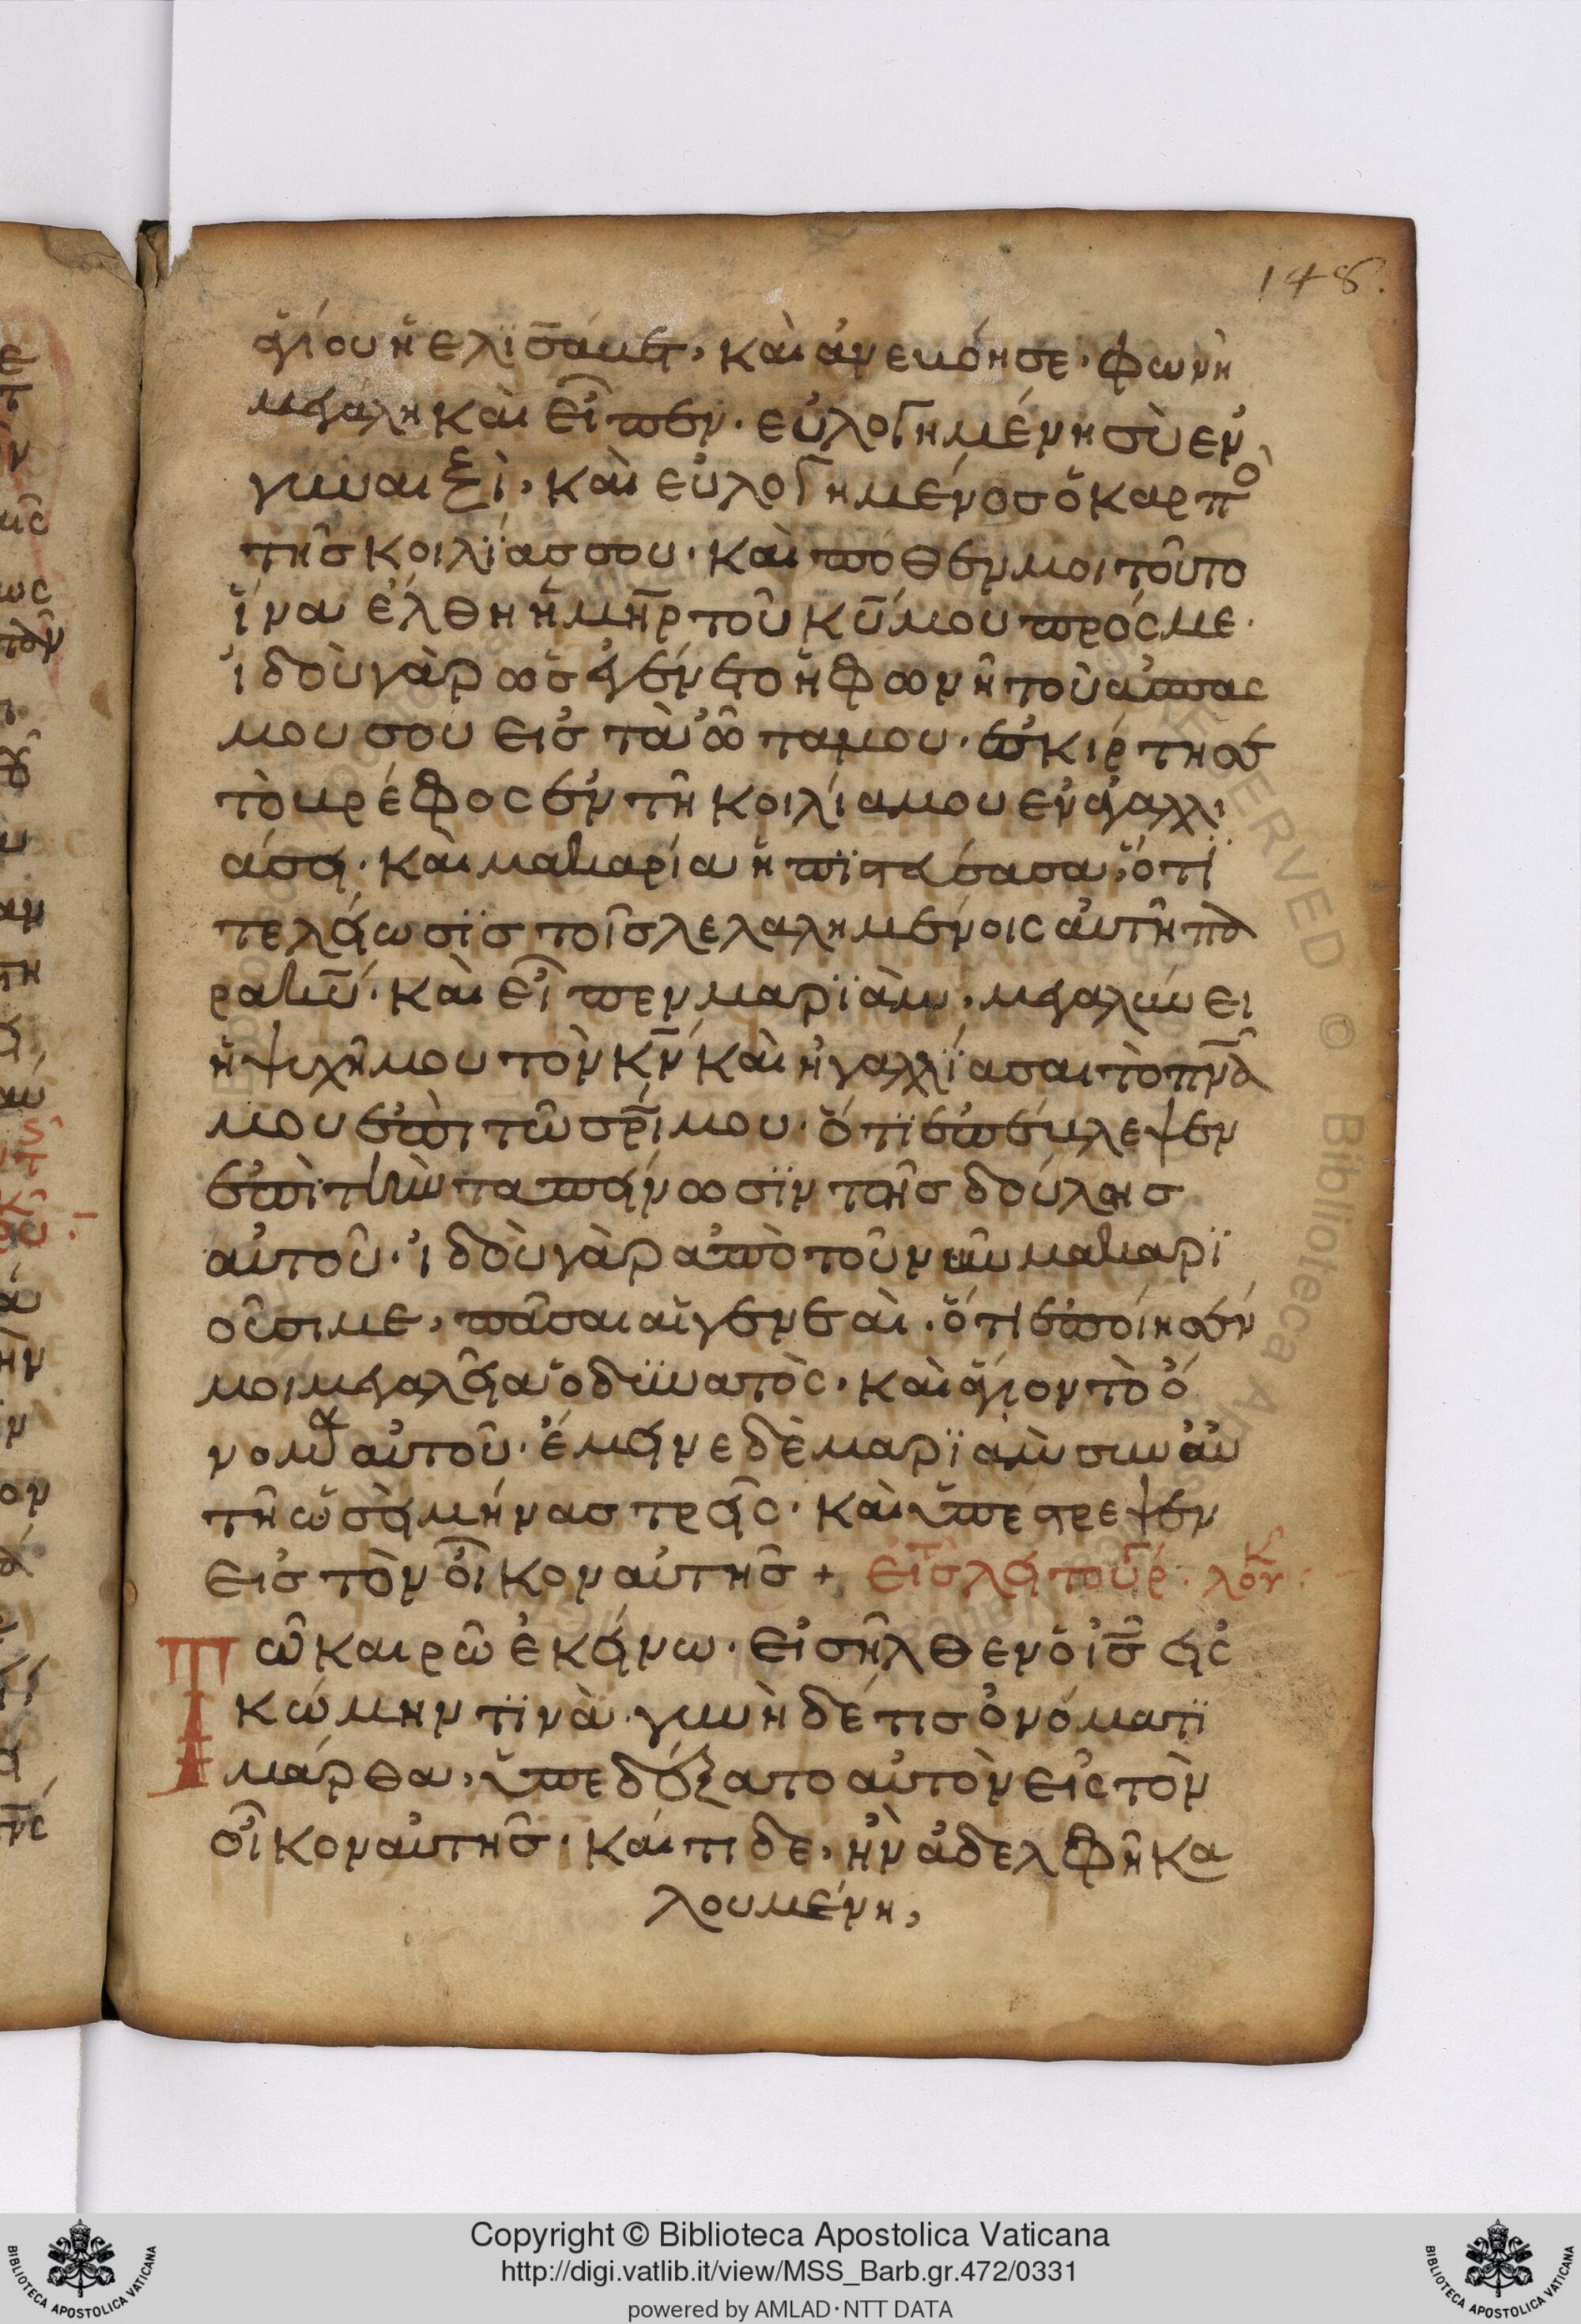 148.
ἁγίου ἡ ελϊσάβετ, καὶ ἀνεβόησε, φωνὴ
μεγάλη καὶ εἶπεν· εὐλογημένη σὺ ἐν
γυναιξὶ, καὶ εὐλογημένοσ ὁ καρπὸ
τῆσ κοιλίασ σου· καὶ πόθεν μοι τοῦτο
ἵνα ἔλθη ἡ μη̅ρ τοῦ κ̅υ μου πρόσ με·
ἰδοὺ γὰρ ωσ ἐγένετο ἡ φωνῆ τοῦ ἀσπασ
μου σου εισ τὰ ὦτα μου· ἐσκίρτησε
τὸ βρέφοσ ἐν τῆ κοιλία μου ἐν ἀγαλλι
άσει· καὶ μακαρία ἡ πϊστεύσασα, ὅτϊ
τελείωσϊσ τοῖσ λελαλημένοισ αὐτῆ πα
ρα κ̅υ· καὶ εἶπεν μαρϊὰμ, μεγαλύνει
ἡ ψυχῆ μου τὸν κ̅ν καὶ ἠγαλλίασαι τὸ πν̅α
μου ἐπὶ τῶ σρ̅ι μου· ὅτϊ ἐπέβλεψεν
ἐπὶ τὴν ταπείνωσϊν τῆσ δούλησ
αὐτοῦ· ἰδοὺ γὰρ απὸ τοῦ νῦν μακαρϊ
οῦσι με, πᾶσαι αἱ γενεαὶ· ὅτι ἐποίησέν
μοι μεγαλεῖα ὁ δϋνατὸσ· καὶ ἅγιον τὸ ὄ
νομα αὐτοῦ· ἔμεινε δὲ μαρϊαμ συν ἀυ
τῆ ὡσεὶ μήνασ τρεῖσ· καὶ ὑπέστρεψεν
εισ τὸν οἶκον αὐτησ + εἰσ τ λειτουρ. λουκ :
Τῶ καιρῶ ἐκείνω· εἰσῆλθεν ὁ ἰ̅σ εἰσ
κώμην τϊνὰ· γυνὴ δέ τισ ὀνόματϊ
μάρθα, ὑπεδέξατο αὐτὸν εἰσ τὸν
οἶκον αὐτησ· καί τι δε, ἦν ἀδελφῆ κα
λουμένη,
Copyright © Biblioteca Apostolica Vaticana
http://digi.vatlib.it/view/MSS_Barb.gr.472/0331
powered by AMLAD·NTT DATA
BIBLIOTECA APOSTOLICA VATICANA
BIBLIOTECA APOSTOLICA VATICANA